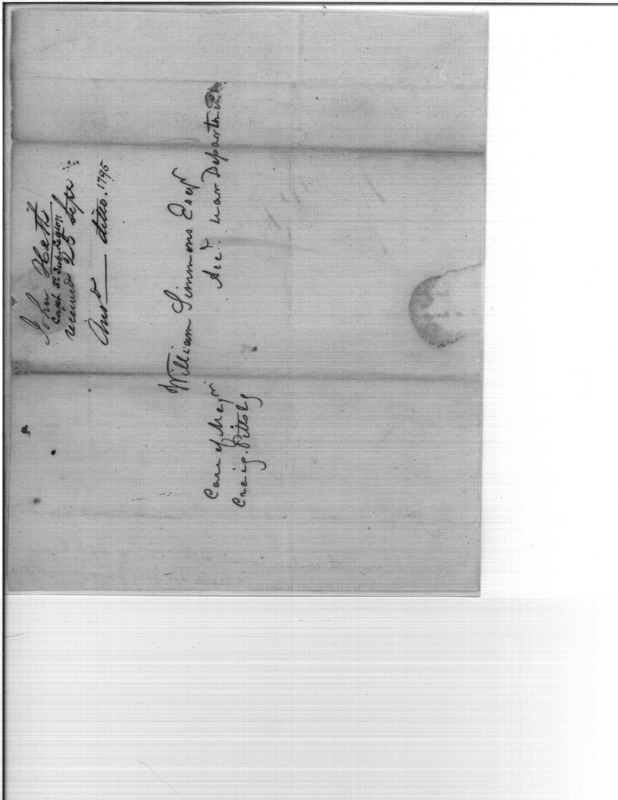 John Heth
Capt 3d. Sub. Legion
received 25 Septr
Ansd ditto. 1795
William Simmons Esqr
Acct. War Department
Care of Major
Craig. Pittsbg